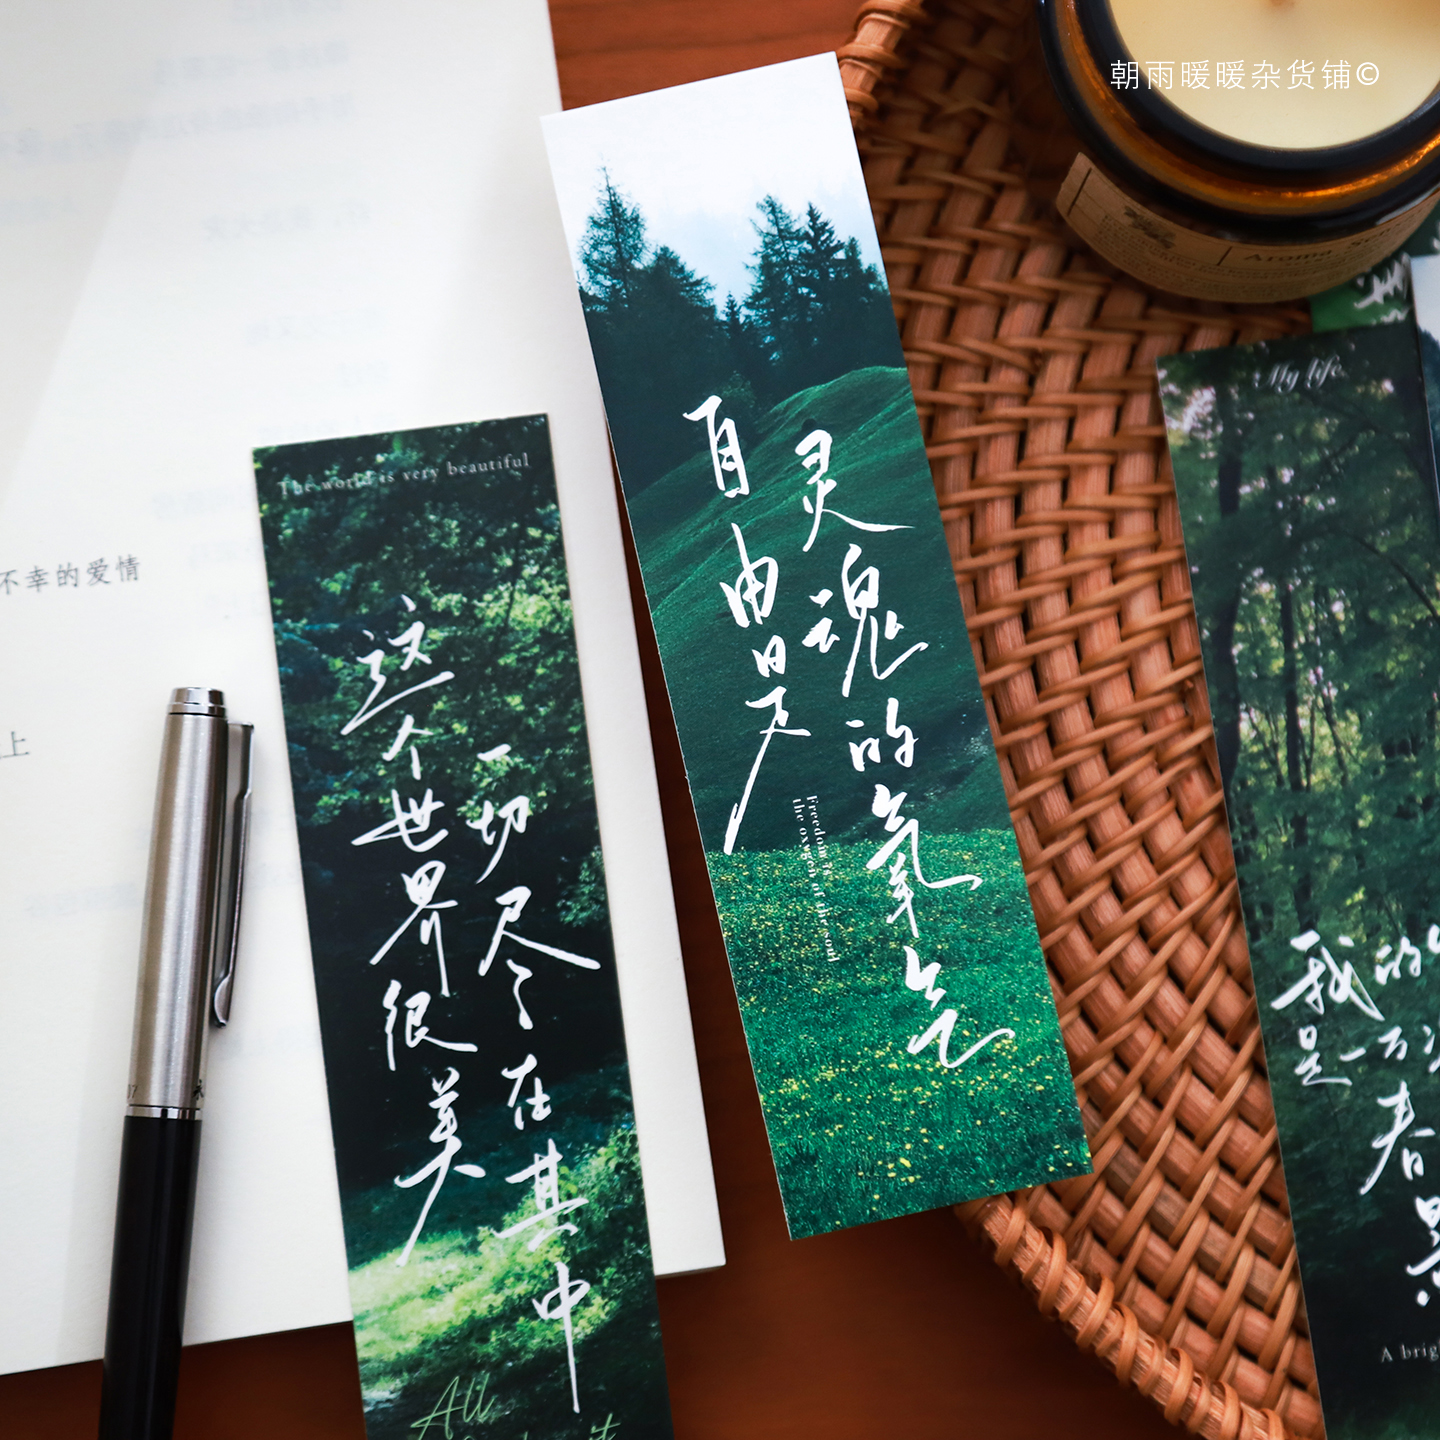 朝雨暖暖杂货铺©
The world is very beautiful
这个世界很美
一切尽在其中
All
自由是
灵魂的氧气
Freedom is
the oxygen of the soul
My life
我的
是一万次
春
景
A brig
不幸的爱情
上
Aroma